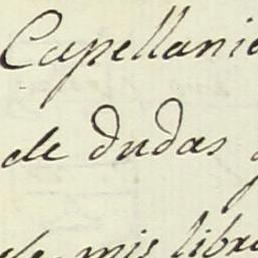 Capellanie
de dudas
de mis libro